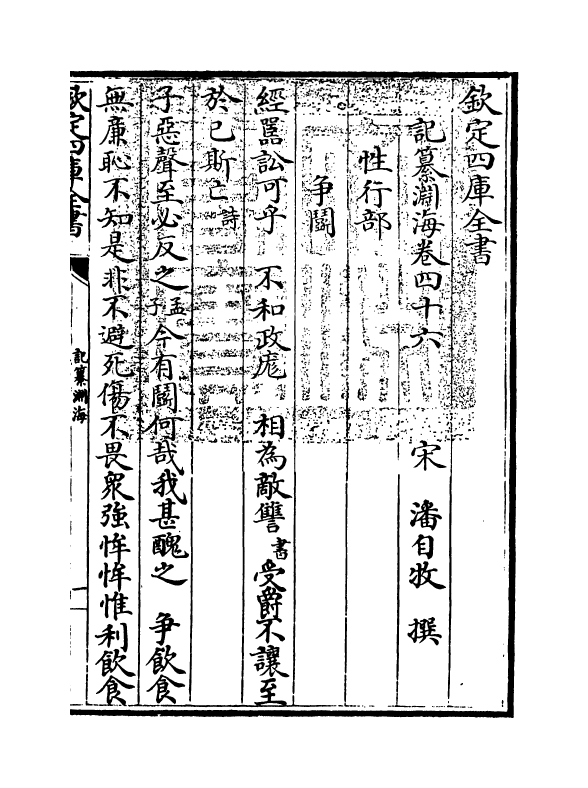 欽定四庫全書
記纂淵海卷四十六　宋　潘自牧　撰
性行部
爭鬭
經嚚訟可乎　不和政厖　相為敵讐書受爵不讓至
於已斯亡詩
子惡聲至必反之孟子今有鬭何哉我甚醜之　爭飲食
無廉恥不知是非不避死傷不畏衆強恈恈惟利飲食
欽定四庫全書
記纂淵海